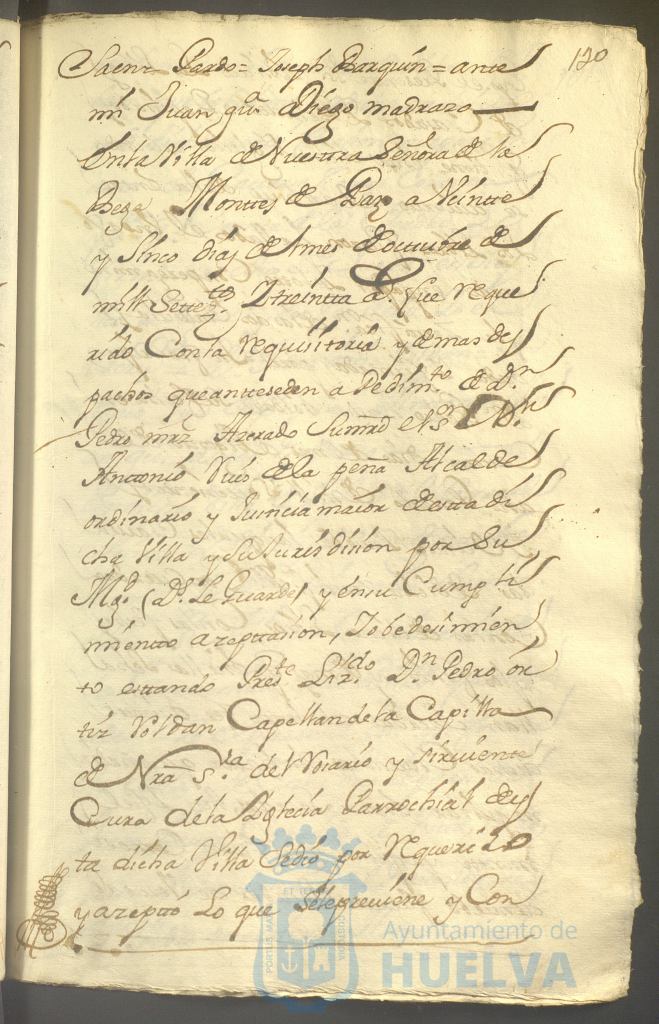 120
Saenz Pardo = Joseph Barquin = ante
mi Juan gra Diego madrazo
En la Villa de Nuestra Señora de la
Bega Montes de Paz a Veintte
y Sinco dias del mes de octubre de
mill Settetos Ztreintta as. fue reque
rido Con la requisitoria y demas des
pachos que antteseden a Pedimto de Dn
Pedro mrz Azerado Sumrd el Sor Dn
Anttonio Ruis de la peña Alcalde
ordinario y Justicia maior de esta di
cha Villa y su Jurisdision por Su
Mgd (Ds. Le Guarde) y en su Cumpli
miento azeptasion, Yobedesimien
to estando Preste Lizdo Dn Pedro or
tiz Roldan Capellan de la Capilla
de Nra Sra del Rosario y sirviente
Cura de la Yglecia Parrochial des
ta dicha Villa Sedio por requerido
y azeptó Lo que Selepreviene y Con
ET TERRAE
PORTUS MARIS
CUSTODIA
Ayuntamiento de
HUELVA